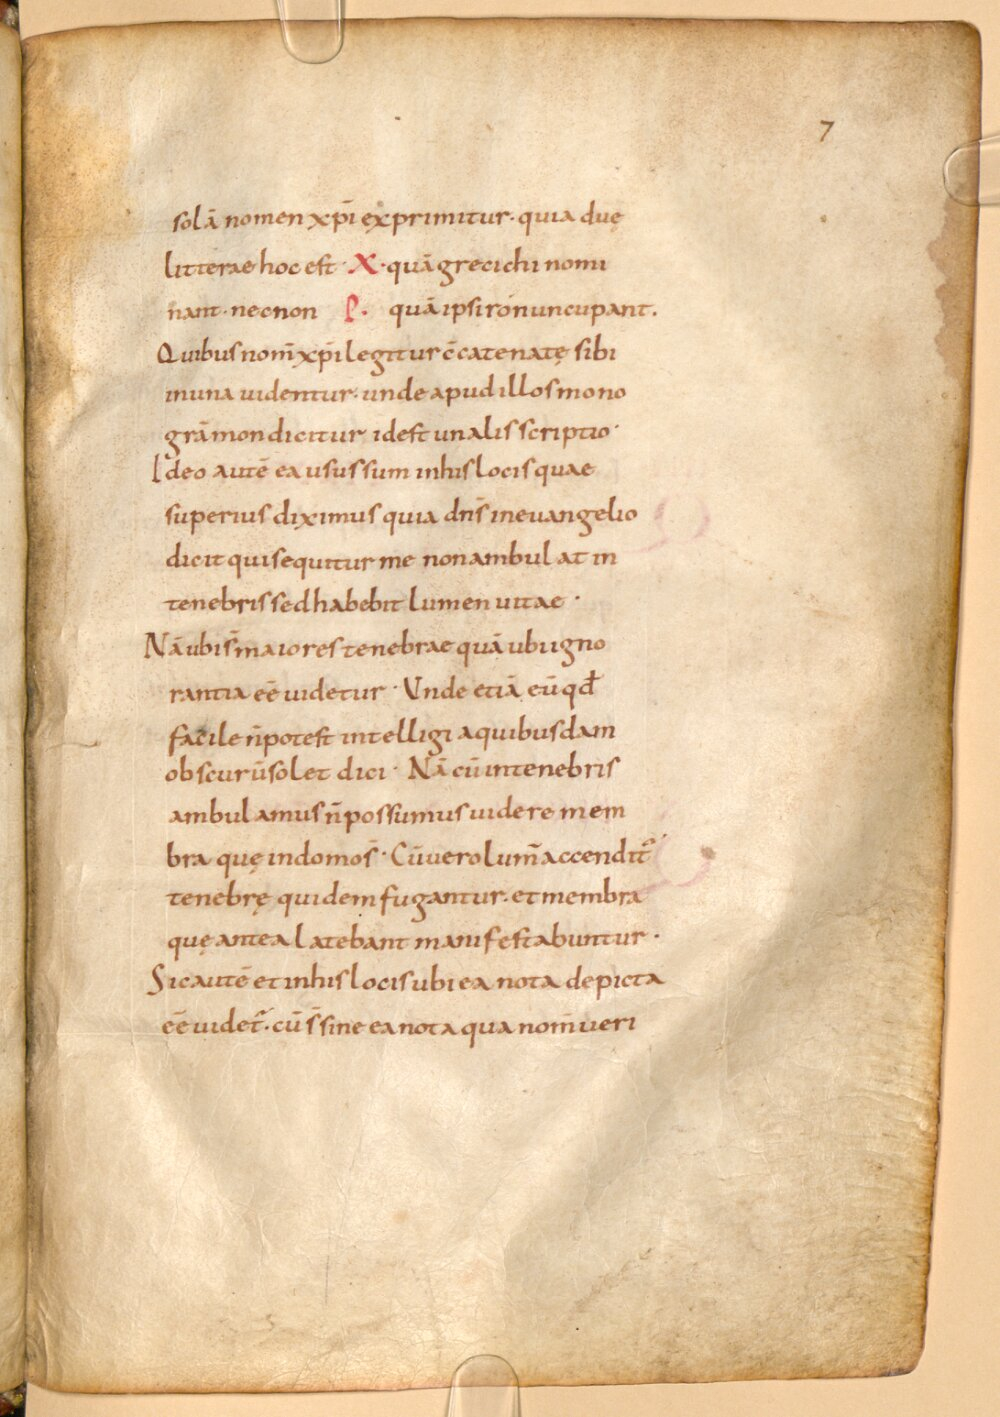 7
solā nomen xp̄i exprimitur · quia duę
litterae hoc est · X · quā greci chi nomi
nant · necnon ρ · quā ipsi ro nuncupant .
Quibus nom̄ xp̄i legitur c̄catenatę sibi
inuna uidentur · unde apud illos mono
grāmon dicitur idest unalis scriptio ·
Ideo autē ea usus sum inhis locis quae
superius diximus quia dn̄s inevangelio
dicit qui sequitur me non ambulat in
tenebris sed habebit lumen uitae ·
Nā ubi s̄ maiores tenebrae quā ubi igno
rantia eē uidetur · Unde etiā eū qđ
facile n̄ potest intelligi aquibusdam
obscurū solet dici · Nā cū intenebris
ambulamus n̄ possumus uidere mem
bra quę indomo s̄ · Cū vero lum̄ accendit᷒
tenebrę quidem fugantur · et membra
quę antea latebant manifestabuntur ·
Sic autē et inhis locis ubi ea nota depicta
eē uidet᷒ · cū s̄ sine ea nota qua nom̄ ueri